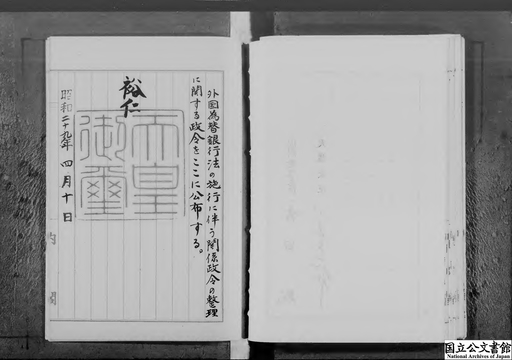 外国為替銀行法の施行に伴う関係政令の整理
に関する政令をここに公布する。
裕仁
天皇
御璽
昭和二十九年四月十日
内閣
国立公文書館
National Archives of Japan